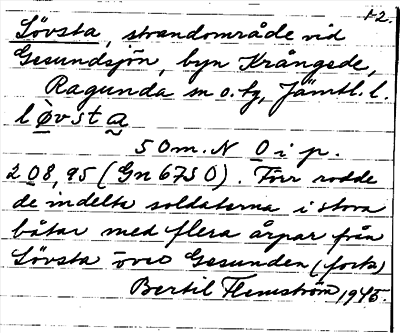 12.
Lövsta, strandområde vid
Gesundsjön, byn Krångede,
Ragunda sn o. tg, Jämtl. l.
lövsta
50m. N O i p.
208,95 (Gn 6750). Förr rodde
de indelta soldaterna i stora
båtar med flera årpar från
Lövsta över Gesunden (forts)
Bertil Flemström 1945.